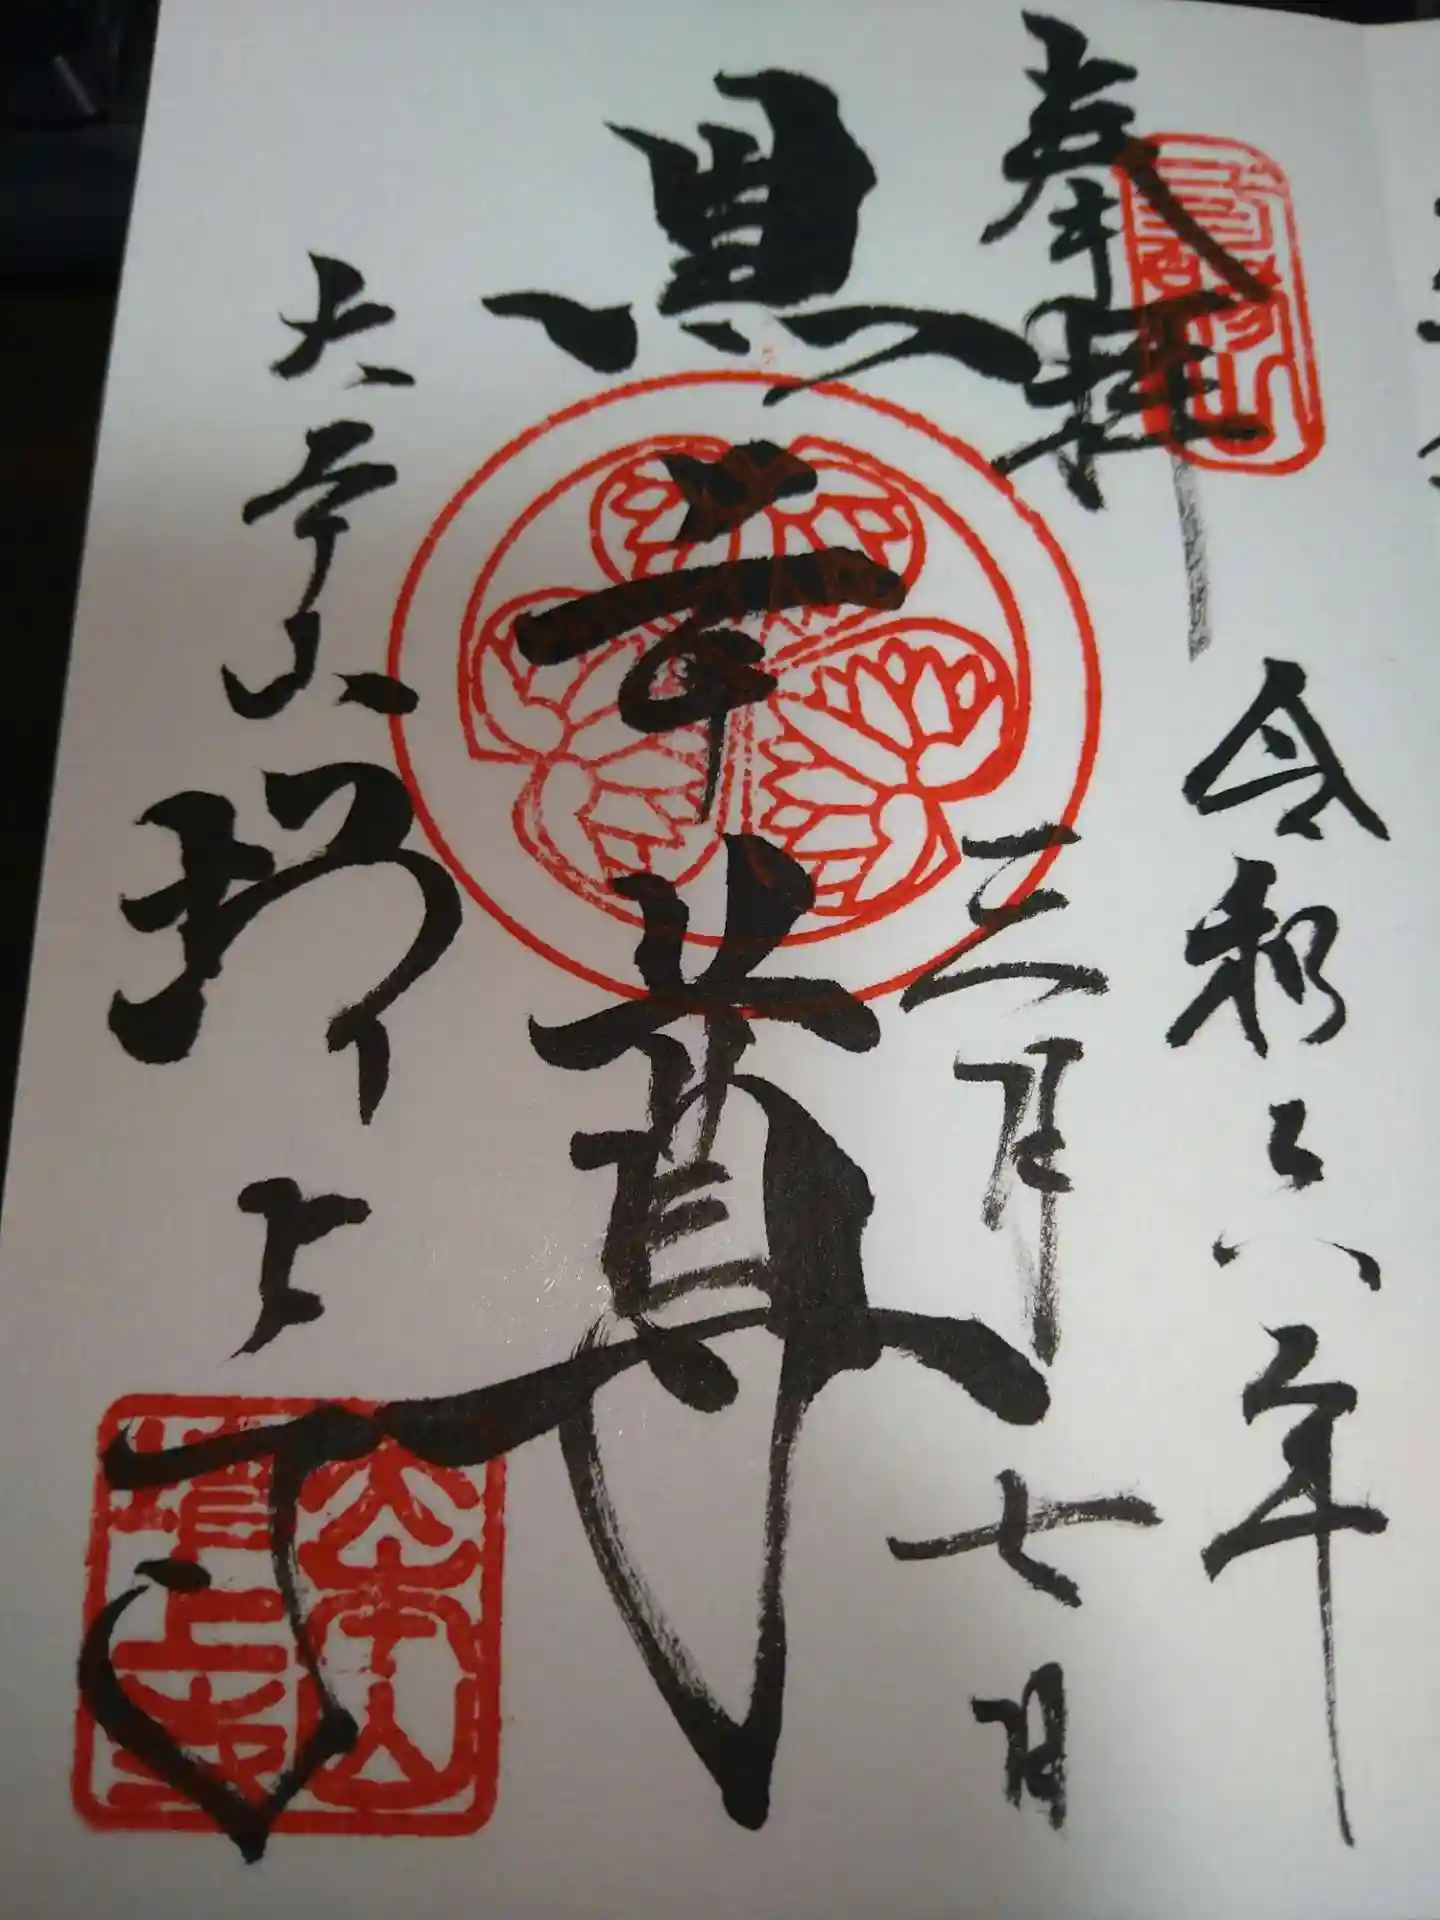 奉拝
三縁山
令和六年
三月七日
黒本尊
大本山増上寺
大本山
増上寺